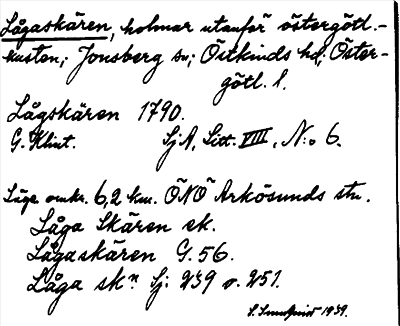 Lågaskären, holmar utanför östergötl.-
kusten; Jonsberg sn; Östkinds hd; Öster-
götl. l.
Lågskären 1790.
G. Klint. SjA, Litt. VIII, N:o 6.
Läge omkr. 6,2 km. ÖNÖ Arkösunds stn.
Låga Skären ek.
Lågaskären G. 56.
Låga skn Sj: 239 o. 251.
S. 1939.